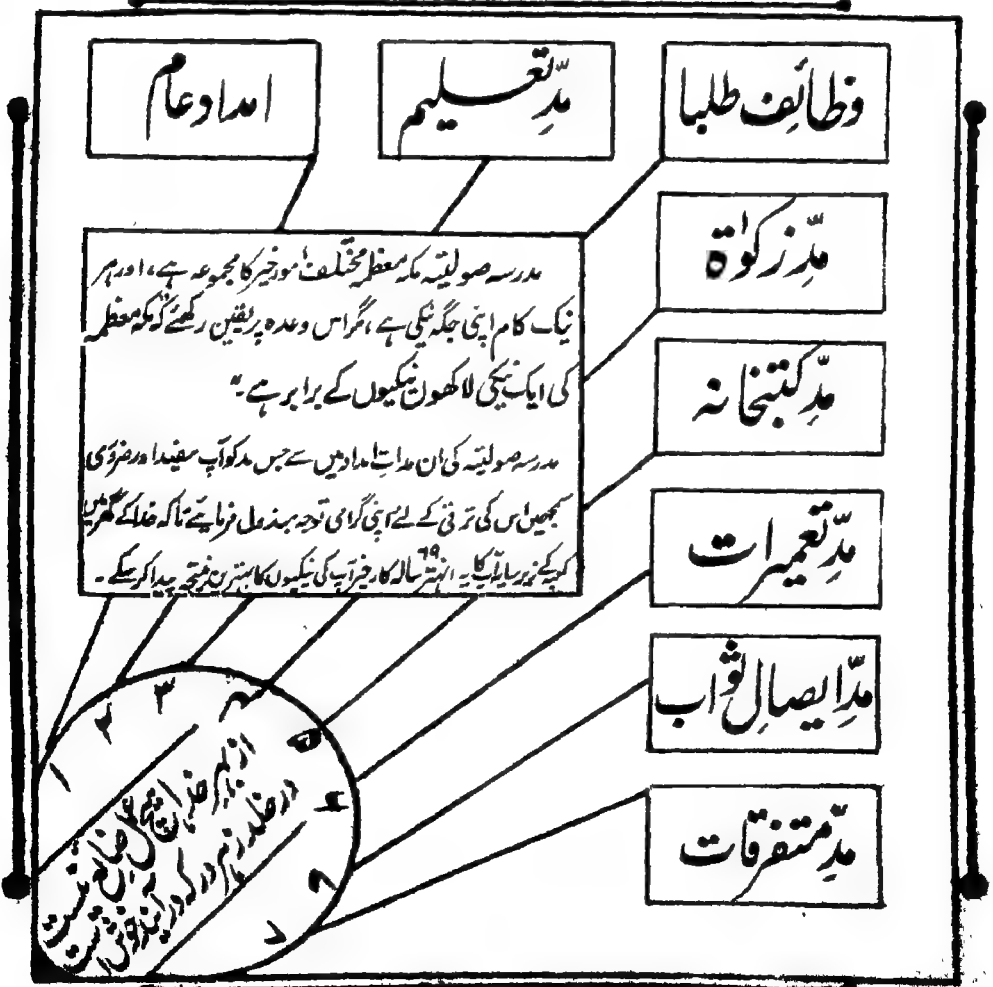 وظائف طلبا
مدِّ تعلیم
امداد عام
مدِّ زکوٰۃ
مدِّ کتبخانہ
مدِّ تعمیرات
مدِّ ایصالِ ثواب
مدِّ متفرقات
مدرسہ صولتیہ مکہ معظمہ مختلف اُمورِ خیر کا مجموعہ ہے، اور ہر
نیک کام اپنی جگہ نیکی ہے، مگر اس وعدہ پر یقین رکھئے کہ مکہ معظمہ
کی ایک نیکی لاکھوں نیکیوں کے برابر ہے۔"
مدرسہ صولتیہ کی ان مداتِ امداد میں سے جس مد کو آپ مفید اور ضروری
سمجھیں اس کی ترقی کے لئے اپنی گرامی توجہ مبذول فرمایئے تاکہ خدا کے گھر میں
کعبہ کے زیر سایہ آپ کا یہ انہتر ۶۹ سالہ کارِ خیر آپ کی نیکیوں کا بہترین نتیجہ پیدا کر سکے۔
۱
۲
۳
۴
۵
۶
۹
از بہر خدا ہیچ عمل ضایع نیست
در خلد ز ہر در کہ در آیند خوش است